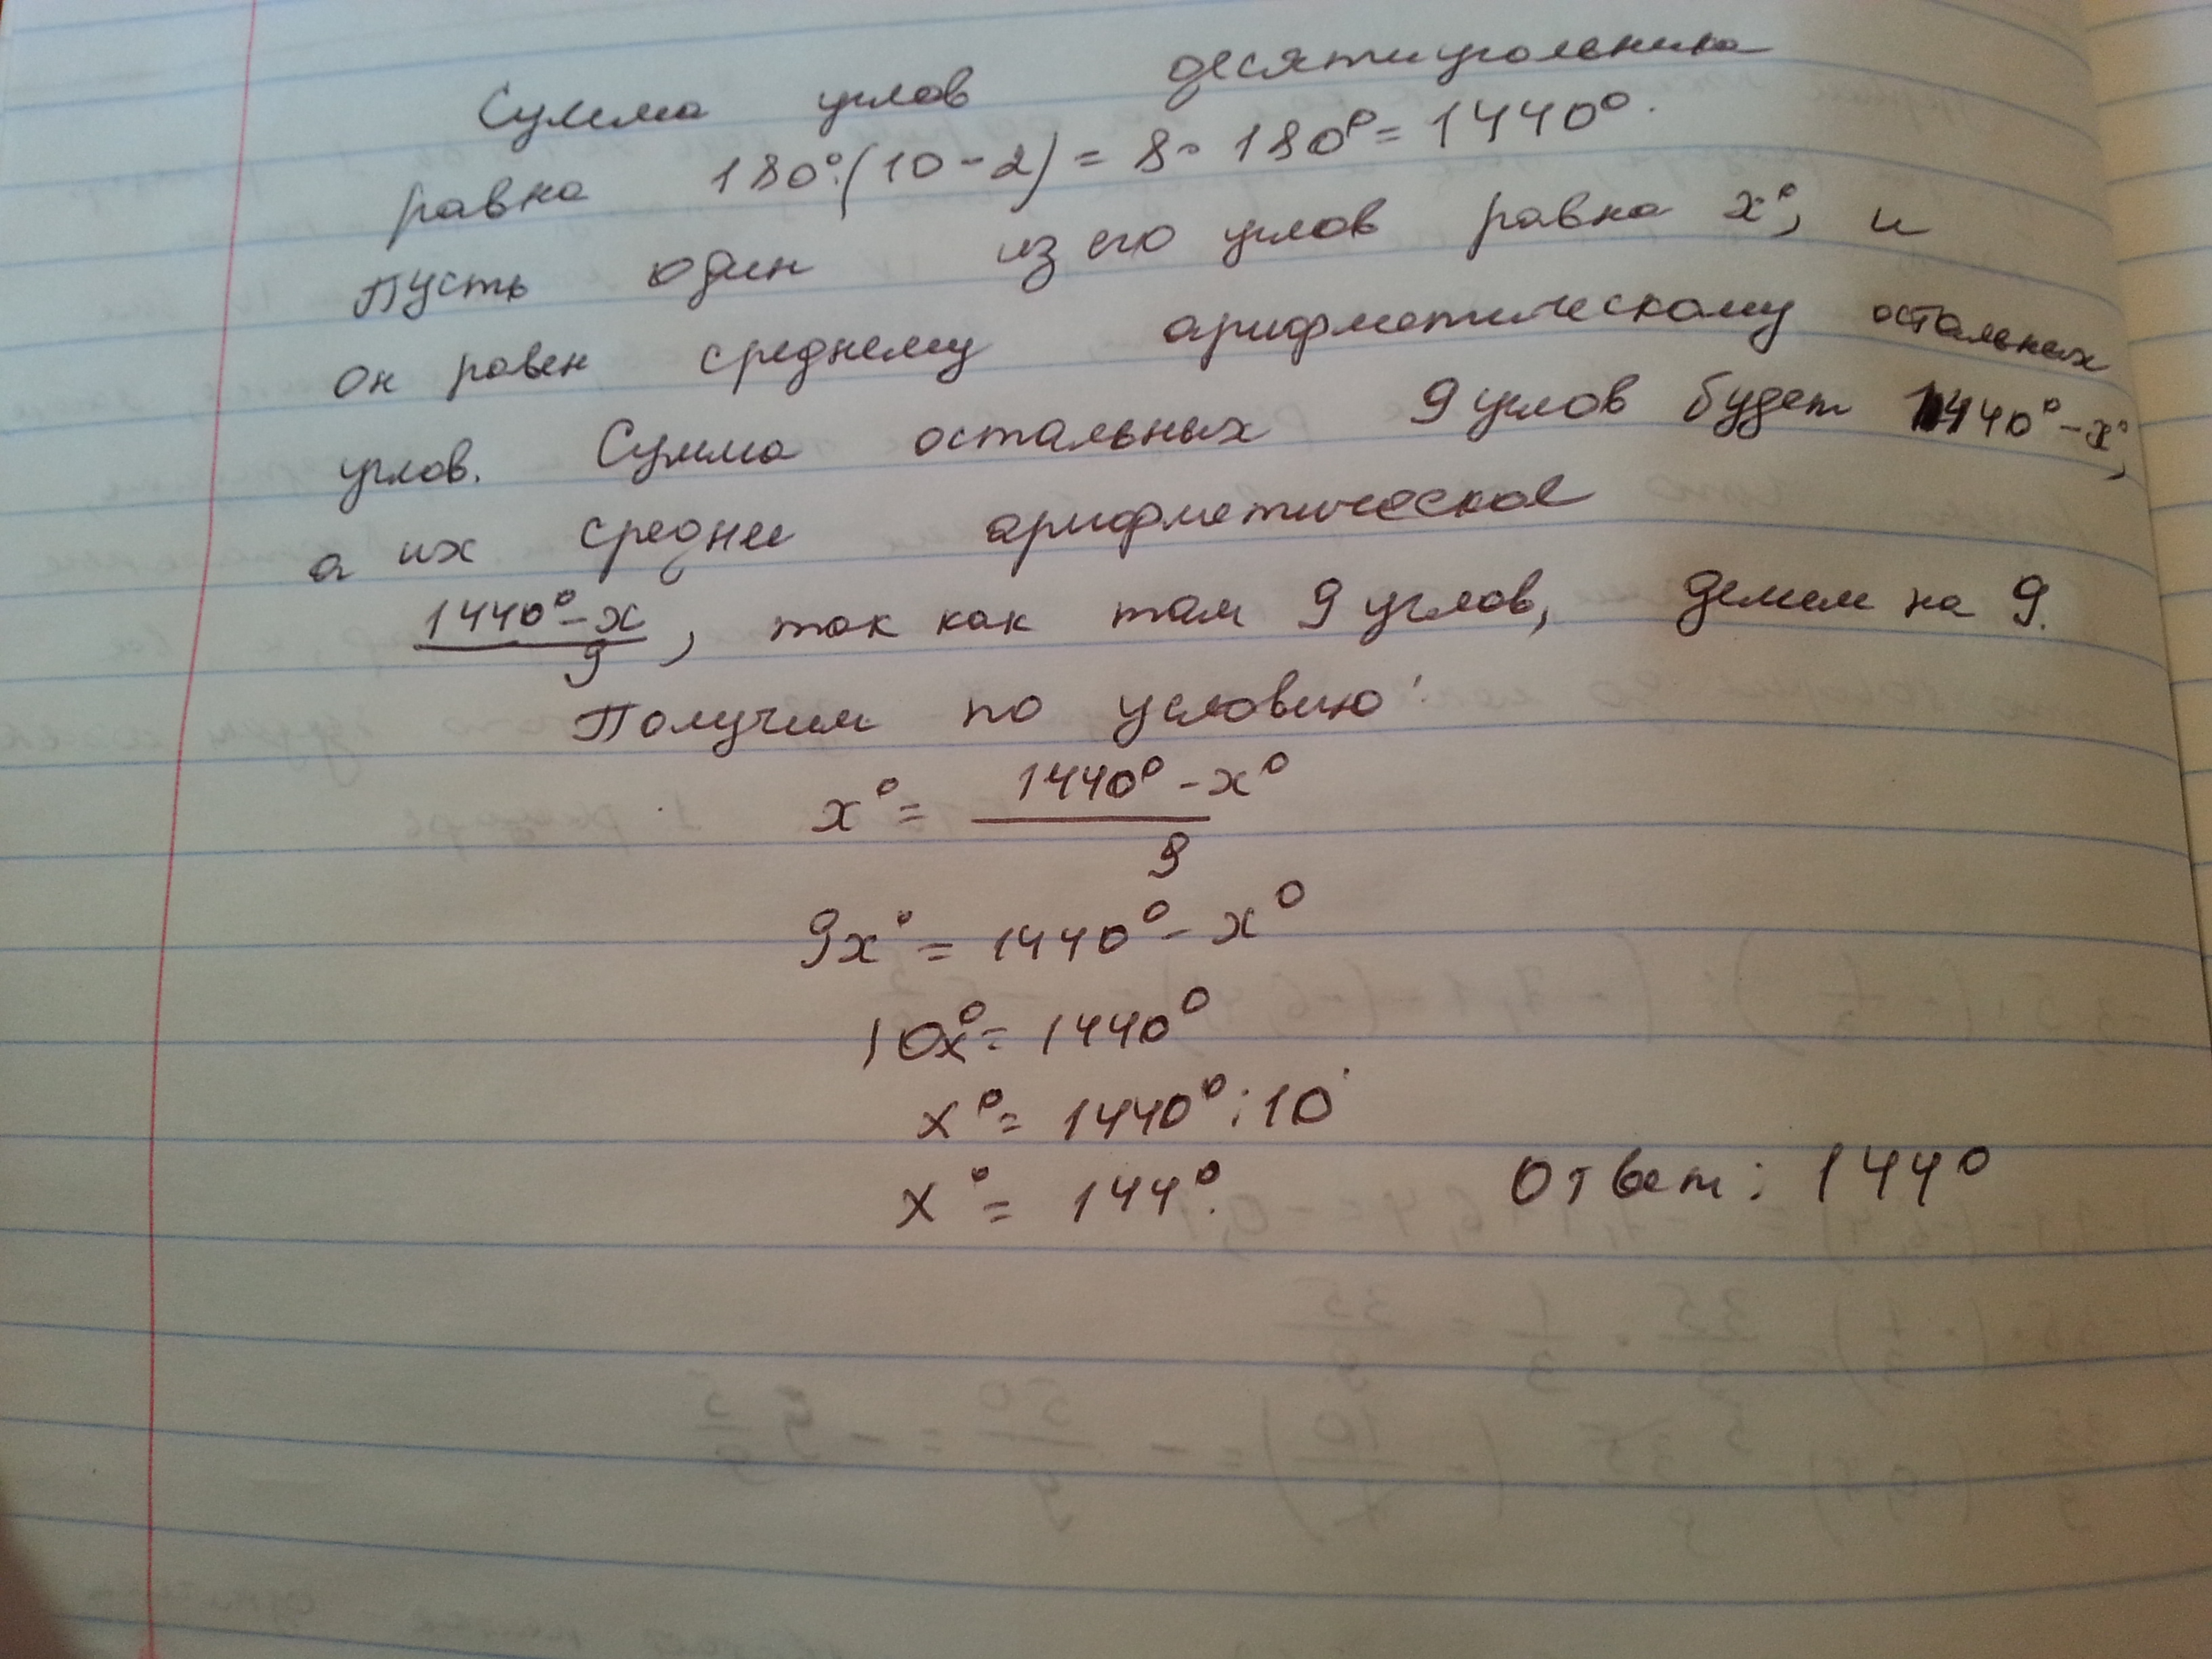 Сумма углов десятиугольника
равна 180°·(10-2) = 8·180° = 1440°.
Пусть один из его углов равна x°, и
он равен среднему арифметическому остальных
углов. Сумма остальных 9 углов будет 1440°-x°,
а их средне арифметическое
1440°-x / 9, так как там 9 углов, делим на 9.
Получим по условию:
x° = 1440°-x° / 9
9x° = 1440°-x°
10x° = 1440°
x° = 1440°:10
x° = 144°. Ответ: 144°